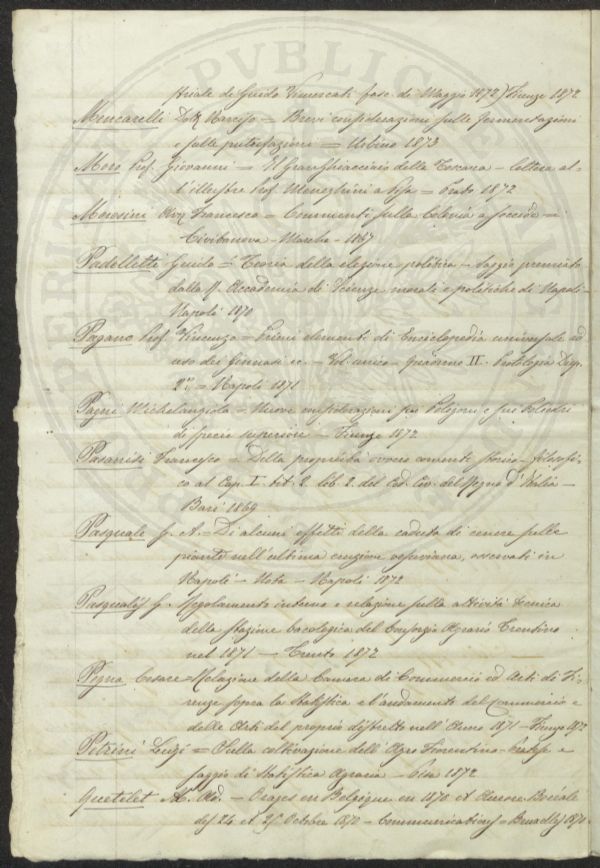 striale di Guido Vimercati fasc. di Maggio 1872) Firenze 1872
Mencarelli Dott. Narciso = Brevi considerazioni sulle fermentazioni
e sulle putrefazioni = Urbino 1873
Moro Prof. Giovanni = Il Gran Ghiacciaio della Toscana - lettera al-
l'illustre Prof. Meneghini a Pisa = Prato 1872
Morosini Francesco = Commenti sulla Colonia a soccida =
Civitanova - Marche - 1867
Padelletti Guido = Teoria della elezione politica - Saggio premiato
dalla R. Accademia di Scienze morali e politiche di Napoli
Napoli 1870
Pagano Prof. Vincenzo = Primi elementi di Enciclopedia universale ad
uso dei Ginnasi ec. - Vol. unico - Quaderno II. Protologia Disp.
2ª = Napoli 1871
Pagni Michelangiolo = Nuove considerazioni sui Poligoni e sui Poliedri
di specie superiore - Firenze 1872
Pasanisi Francesco = Della proprietà ovvero comento storico-filosofi-
co al Cap. I. tit. 2. lib. 2. del Cod. Civ. del Regno d'Italia -
Bari 1869
Pasquale G. A. = Di alcuni effetti della caduta di cenere sulle
piante nell'ultima eruzione vesuviana, osservati in
Napoli - Nota - Napoli 1872
Pasqualis G. Regolamento interno e relazione sulla attività tecnica
della stazione bacologica del Consorzio Agrario Trentino
nel 1871 - Trento 1872
Pegna Cesare = Relazione della Camera di Commercio ed Arti di Fi-
renze sopra la Statistica e l'andamento del Commercio e
delle Arti del proprio distretto nell'Anno 1871 - Firenze 1872
Petrini Luigi = Sulla coltivazione dell'Agro Fiorentino-Pratese e
saggio di Statistica Agraria - Pisa 1872
Quetelet Ad. - Orages en Belgique en 1870 et Aurore Boréale
des 24 et 25 Octobre 1870 - Communications - Bruxelles 1870
PVBLICAE